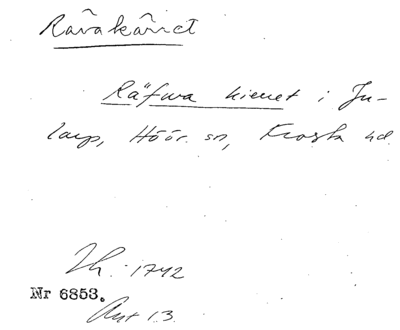 Rävakärret
Räfwa kieret i Ju-
larp, Höör sn, Frosta hd.
Lh. 1742
Nr 6853.
Avt 13.